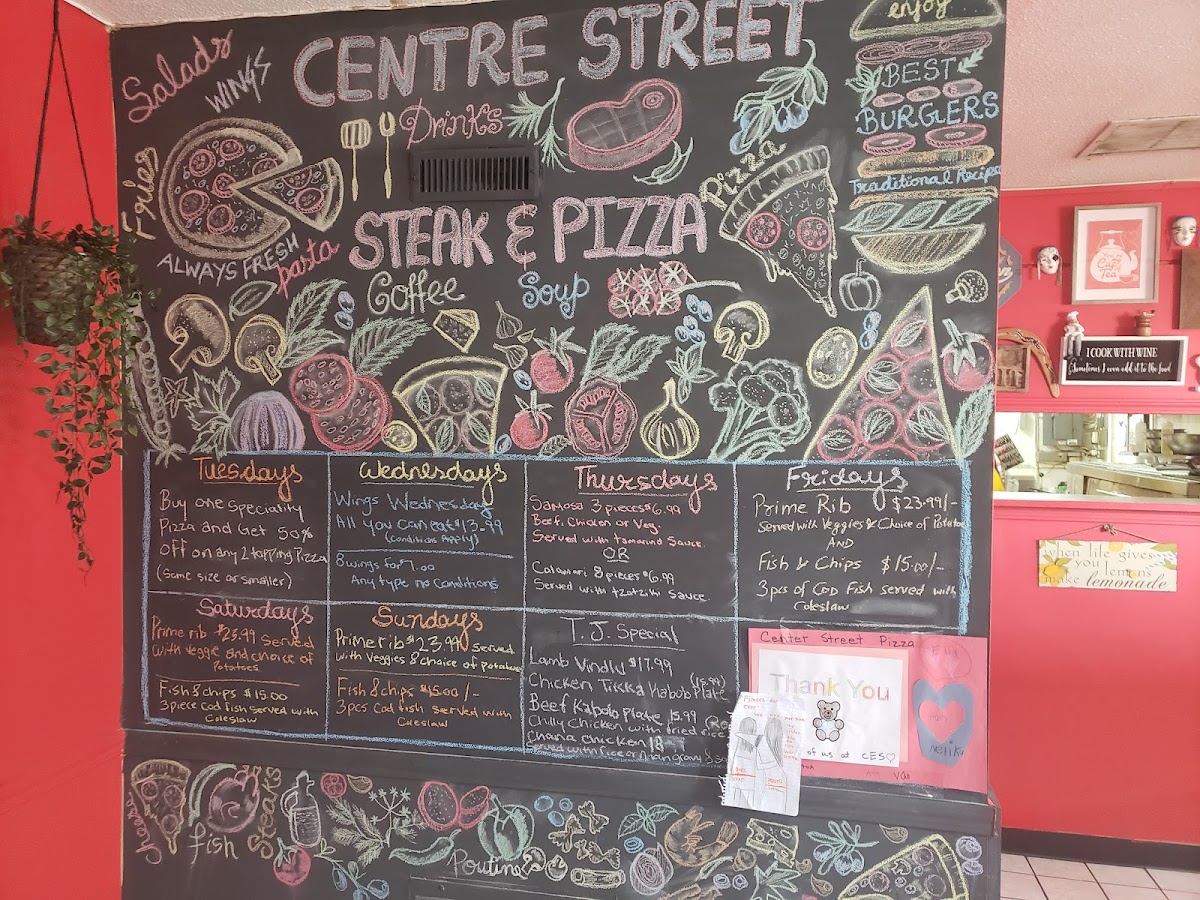 Salads
WINGS
CENTRE STREET
enjoy
BEST
BURGERS
Traditional Recipe
Drinks
Fries
Pizza
ALWAYS FRESH
pasta
STEAK & PIZZA
Coffee
Soup
Tuesdays
Buy one speciality
Pizza and Get 50%
off on any 2 topping Pizza
(Same size or smaller)
Wednesdays
Wings Wednesday
All you can eat $13.99
(Conditions Apply)
8 wings for 7.00
Any type no Conditions
Thursdays
Samosa 3 pieces $6.99
Beef, Chicken or Veg.
Served with tamarind Sauce.
OR
Calamari 8 pieces $6.99
Served with tzatziki Sauce
Fridays
Prime Rib $23.99/-
Served with Veggies & Choice of Potatoes
AND
Fish & Chips $15.00/-
3 pcs of Cod Fish served with
Coleslaw
Saturdays
Prime rib $23.99 Served
with veggie and choice of
Potatoes
Fish & chips $15.00
3 piece Cod fish Served with
Coleslaw
Sundays
Prime rib $23.99/ Served
with Veggies & choice of potatoes
Fish & chips $15.00/-
3 pcs Cod fish served with
Coleslaw
T.J. Special
Lamb Vindlu $17.99
Chicken Tikka Kabob Plate (15.99)
Beef Kabob plate 15.99
Chilly Chicken with fried rice
Chana chicken
Served with rice or
Center Street Pizza
Thank You
of us at CES
Ella
nelika
Van
fish
Steaks
Poutine
Cup
Tea
I COOK WITH WINE
Sometimes I even add it to the food
when life gives
you lemons
make lemonade